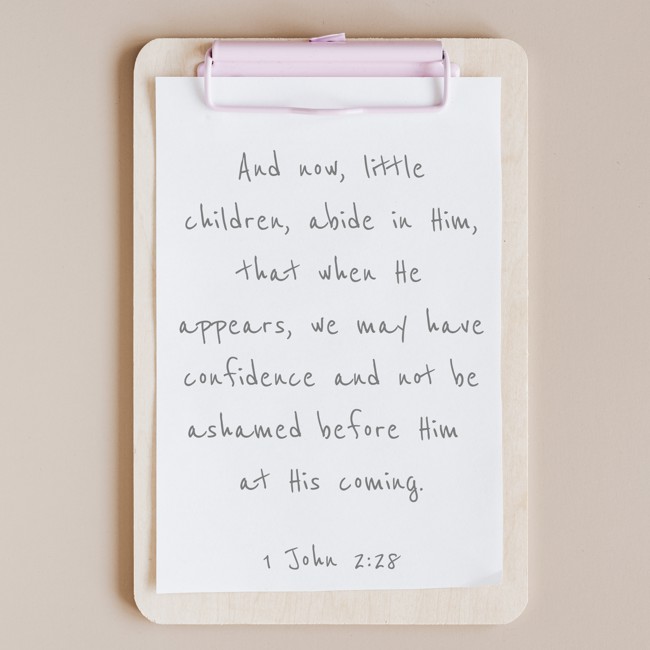 And now, little
children, abide in Him,
that when He
appears, we may have
confidence and not be
ashamed before Him
at His coming.
1 John 2:28